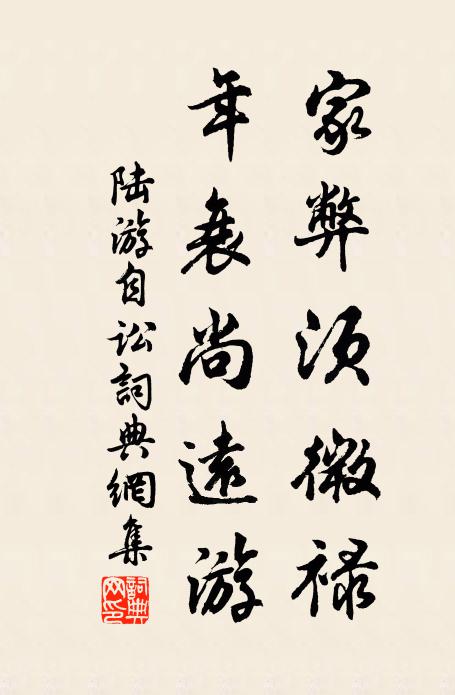 家弊須微禄
年衰尚遠游
陆游自訟詞典網集
詞典网印